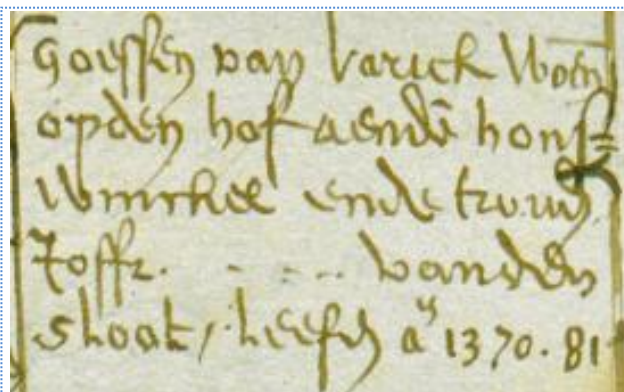 Goessen van Varick Woen
opden hof aende hons=
Winckel ende trouwd
Joffr. - - - - vanden
sloot, leefd a° 1370. 81